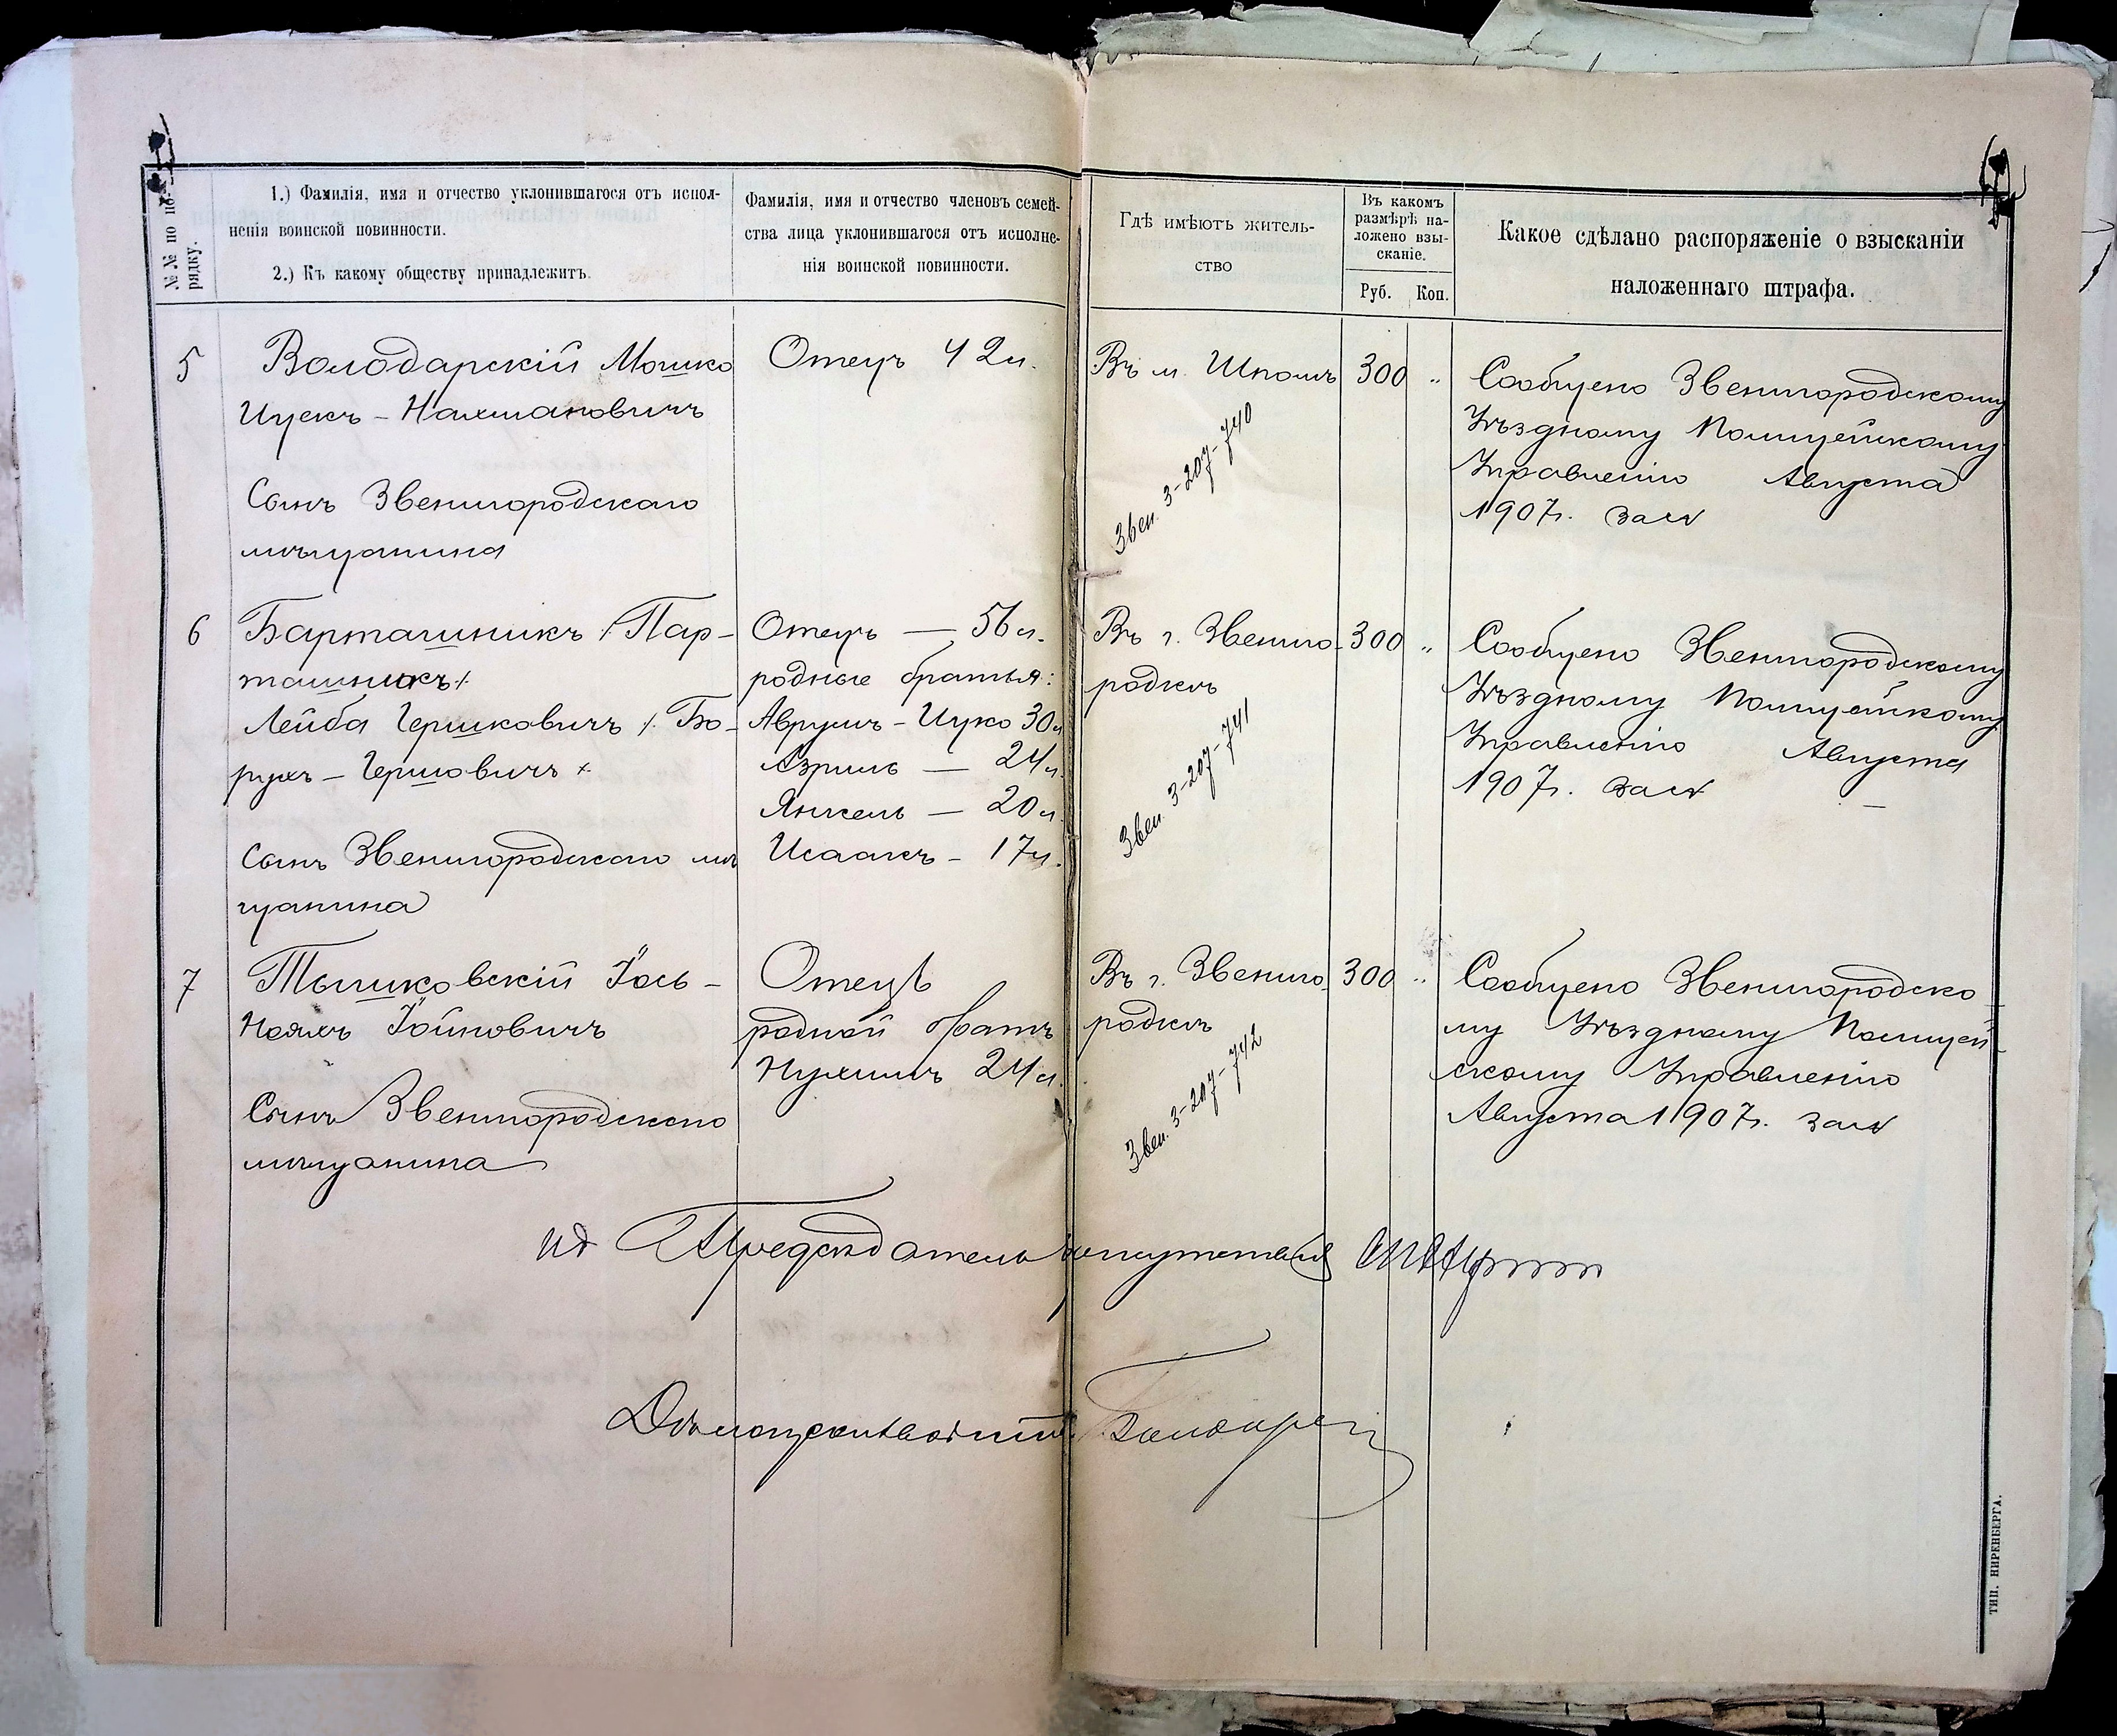 № № по по-
рядку.
1.) Фамилія, имя и отчество уклонившагося отъ испол-
ненія воинской повинности.
2.) Къ какому обществу принадлежитъ.
Фамилія, имя и отчество членовъ семей-
ства лица уклонившагося отъ исполне-
нія воинской повинности.
Гдѣ имѣютъ житель-
ство
Въ какомъ
размѣрѣ на-
ложено взы-
сканіе.
Руб. Коп.
Какое сдѣлано распоряженіе о взысканіи
наложеннаго штрафа.
5
Володарскій Мошко
Ицекъ - Нахмановичъ
Сынъ Звенигородскаго
мѣщанина
Отецъ 42л.
Въ м. Шполѣ
Звен. 3-207-740
300 "
Сообщено Звенигородскому
Уѣздному Полицейскому
Управленію Августа
1907г. за №
6
Барташникъ /Пар-
ташникъ/.
Лейба Гершковичъ /. Бо-
рухъ - Гершовичъ /.
Сынъ Звенигородскаго мѣ
щанина
Отецъ — 56л.
родные братья:
Аврумъ - Ицко 30л
Азриль — 24л.
Янкель — 20л
Исаакъ - 17л.
Въ г. Звениго-
родкѣ
Звен. 3-207-741
300 "
Сообщено Звенигородскому
Уѣздному Полицейскому
Управленію Августа
1907г. за №
7
Тышковскій Іось -
Ноахъ Іойновичъ
Сынъ Звенигородскаго
мѣщанина
Отецъ
родной братъ
Нухимъ 24л.
Въ г. Звениго-
родкѣ
Звен. 3-207-742
300 "
Сообщено Звенигородско
му Уѣздному Полицей
скому Управленію
Августа 1907г. за №
ид Предсѣдателя
Дѣлопроизводитель
ТИП. НИРЕНБЕРГА.